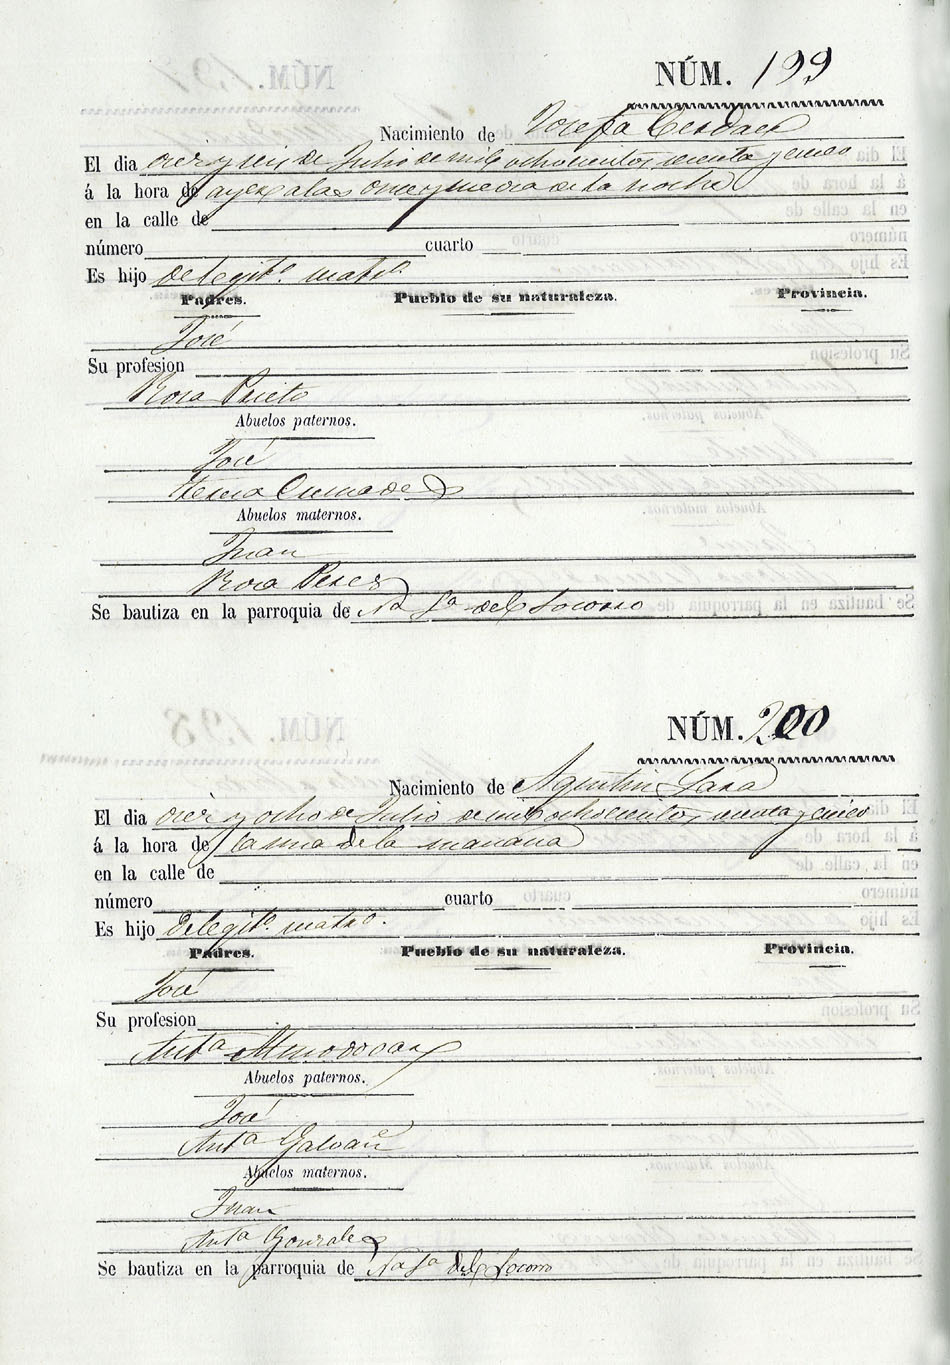 NÚM. 199
Nacimiento de Josefa Cerdá
El dia diez y seis de Julio de mil ochocientos, y cinco
á la hora de ayer a las once y media de la noche
en la calle de
número cuarto
Es hijo de legit.º matr.º
Padres. Pueblo de su naturaleza. Provincia.
José
Su profesion
Rosa Prieto
Abuelos paternos.
José
Teresa
Abuelos maternos.
Juan
Rosa Perez
Se bautiza en la parroquia de Nª Sª del Socorro
NÚM. 200
Nacimiento de Agustin Lara
El dia diez y ocho de Julio de mil ochocientos, y cinco
á la hora de la una de la mañana
en la calle de
número cuarto
Es hijo de legit.º matr.º
Padres. Pueblo de su naturaleza. Provincia.
José
Su profesion
Antª Almodovar
Abuelos paternos.
José
Antª Galvañ
Abuelos maternos.
Juan
Antª Gonzales
Se bautiza en la parroquia de Nª Sª del Socorro